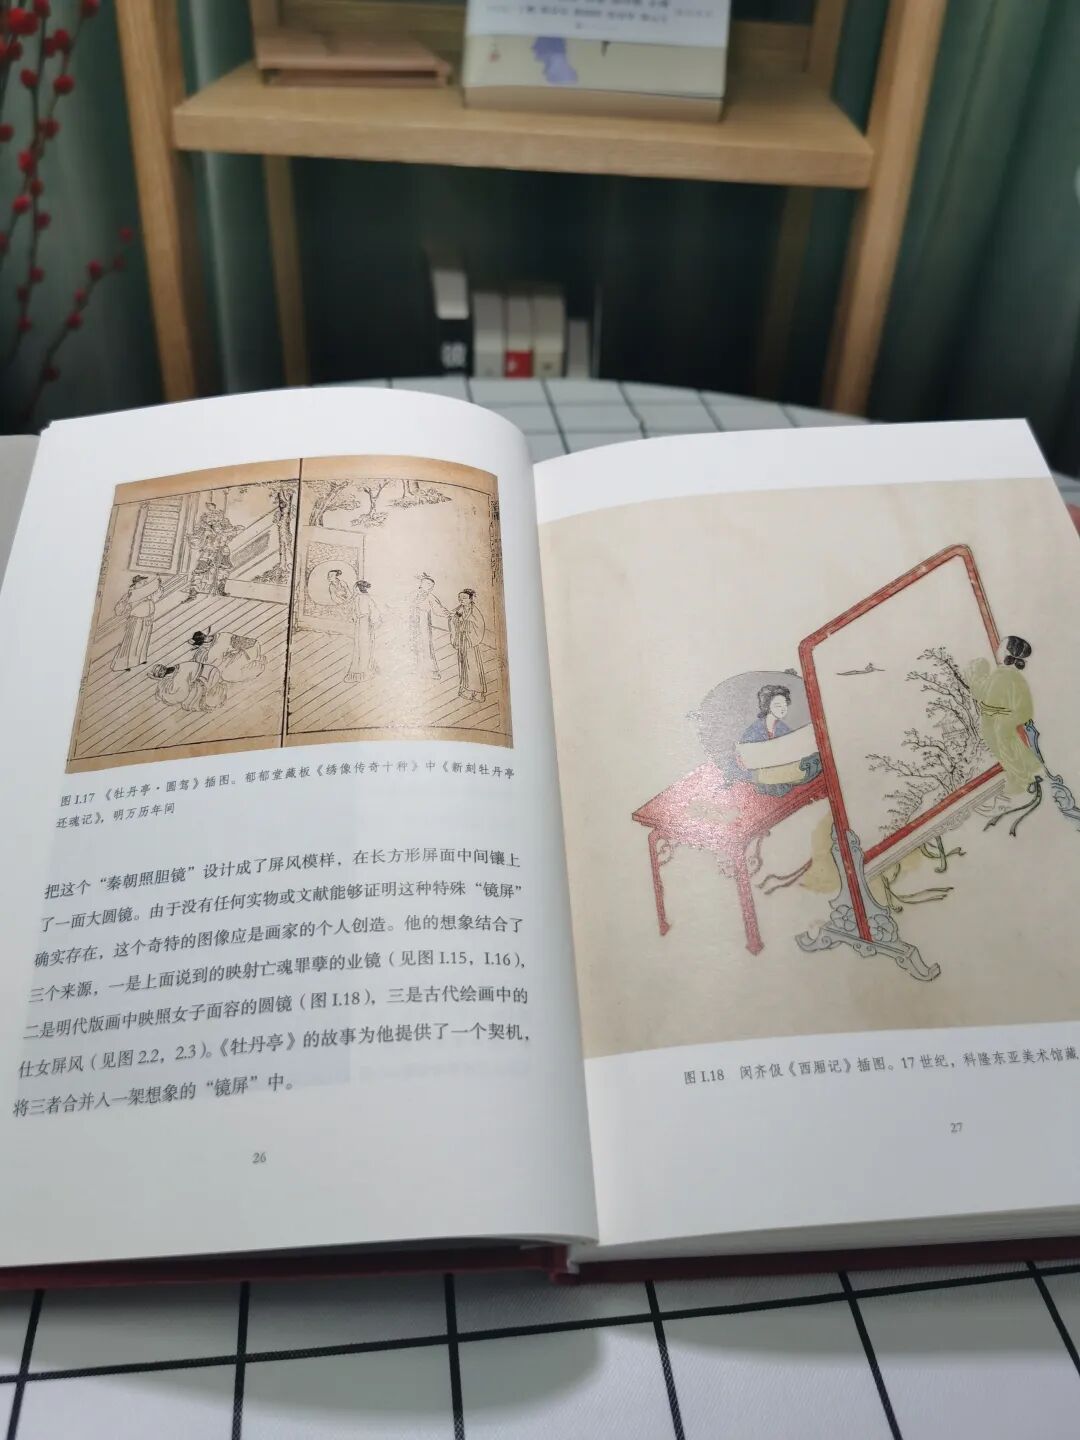 图 I.17 《牡丹亭·圆驾》插图。郁郁堂藏板《绣像传奇十种》中《新刻牡丹亭
还魂记》，明万历年间
把这个“秦朝照胆镜”设计成了屏风模样，在长方形屏面中间镶上
了一面大圆镜。由于没有任何实物或文献能够证明这种特殊“镜屏”
确实存在，这个奇特的图像应是画家的个人创造。他的想象结合了
三个来源，一是上面说到的映射亡魂罪孽的业镜（见图 I.15，I.16），
二是明代版画中映照女子面容的圆镜（图 I.18），三是古代绘画中的
仕女屏风（见图 2.2，2.3）。《牡丹亭》的故事为他提供了一个契机，
将三者合并入一架想象的“镜屏”中。
26
图 I.18 闵齐伋《西厢记》插图。17 世纪，科隆东亚美术馆藏
27